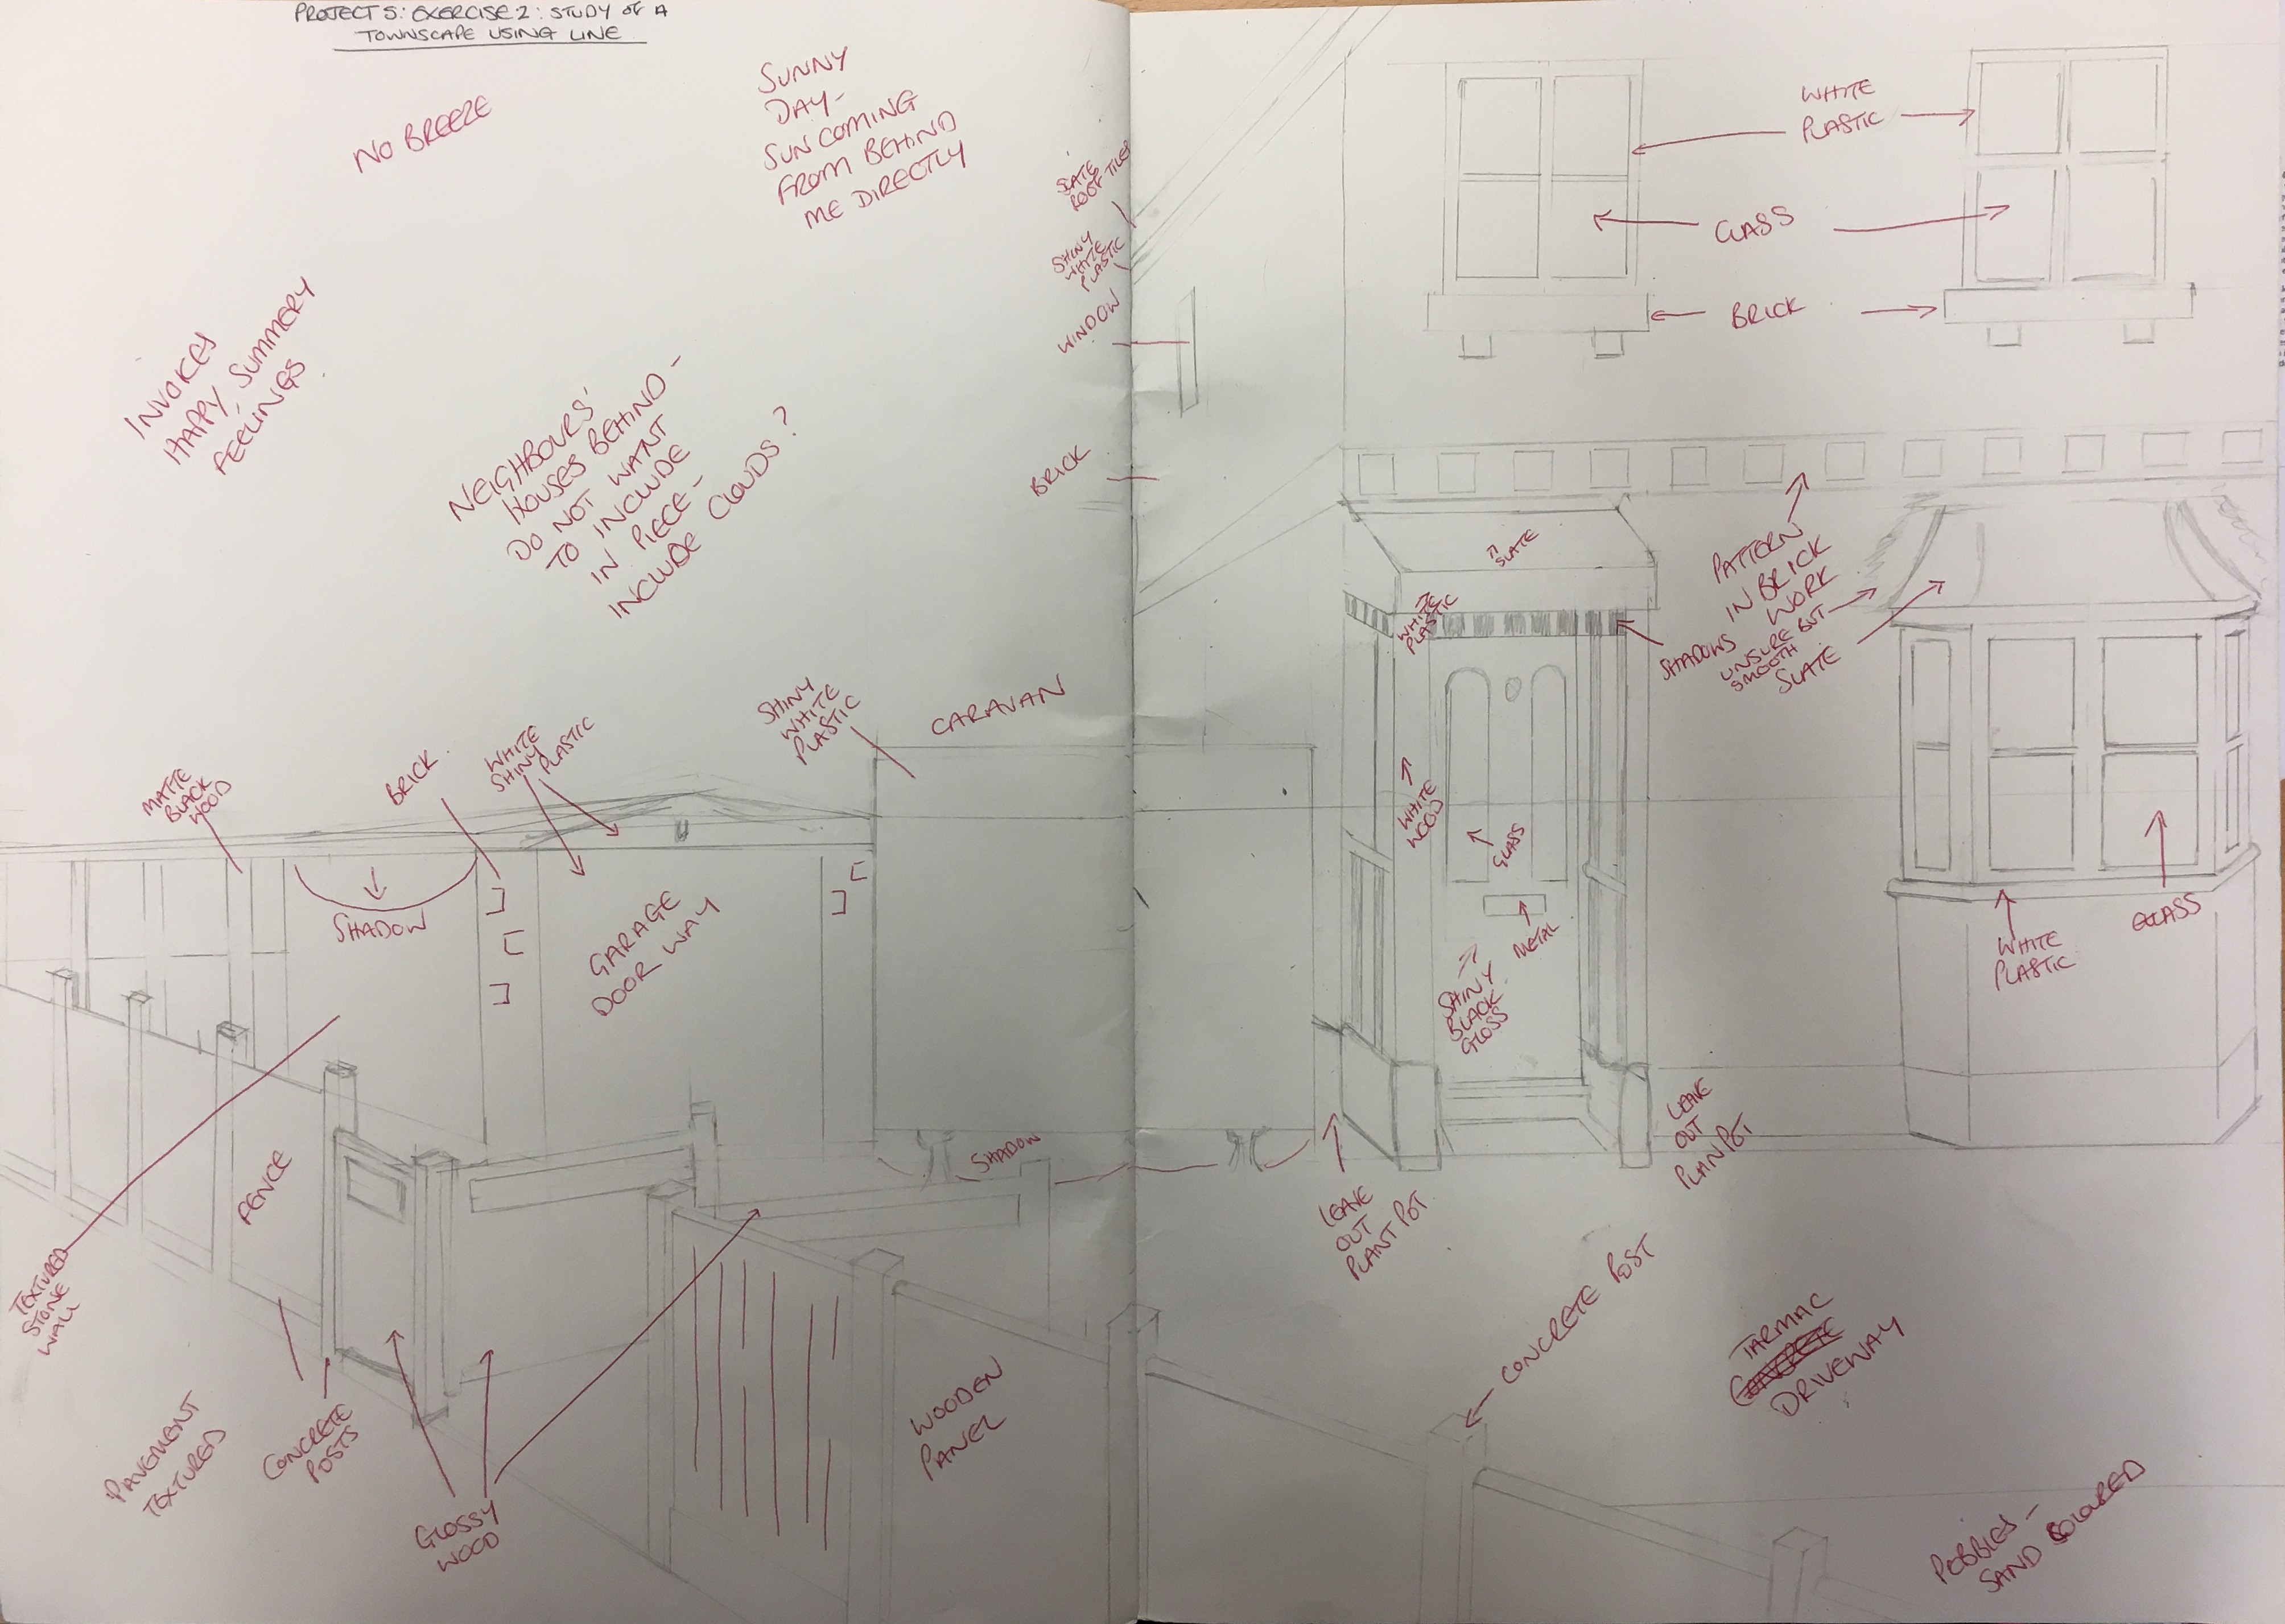 PROJECT 5: EXERCISE 2: STUDY OF A
TOWNSCAPE USING LINE
NO BREEZE
SUNNY
DAY-
SUN COMING
FROM BEHIND
ME DIRECTLY
INVOKES
HAPPY, SUMMERY
FEELINGS.
NEIGHBOURS'
HOUSES BEHIND -
DO NOT WANT
TO INCLUDE
IN PIECE -
INCLUDE CLOUDS?
SLATE
ROOF TILES
SHINY
WHITE
PLASTIC
WINDOW
BRICK
WHITE
PLASTIC
GLASS
BRICK
SLATE
WHITE
PLASTIC
PATTERN
IN BRICK
WORK
SHADOWS
UNSURE BUT
SMOOTH
SLATE
MATTE
BLACK
WOOD
BRICK.
WHITE
SHINY
PLASTIC
SHINY
WHITE
PLASTIC
CARAVAN
SHADOW
GARAGE
DOOR WAY
WHITE
WOOD
GLASS
METAL
SHINY
BLACK
GLOSS
WHITE
PLASTIC
GLASS
FENCE
SHADOW
LEAVE
OUT
PLANT POT
LEAVE
OUT
PLANPOT
TEXTURED
STONE
WALL
PAVEMENT
TEXTURED
CONCRETE
POSTS
GLOSSY
WOOD
WOODEN
PANEL
CONCRETE POST
TARMAC
DRIVEWAY
PEBBLES -
SAND COLOURED